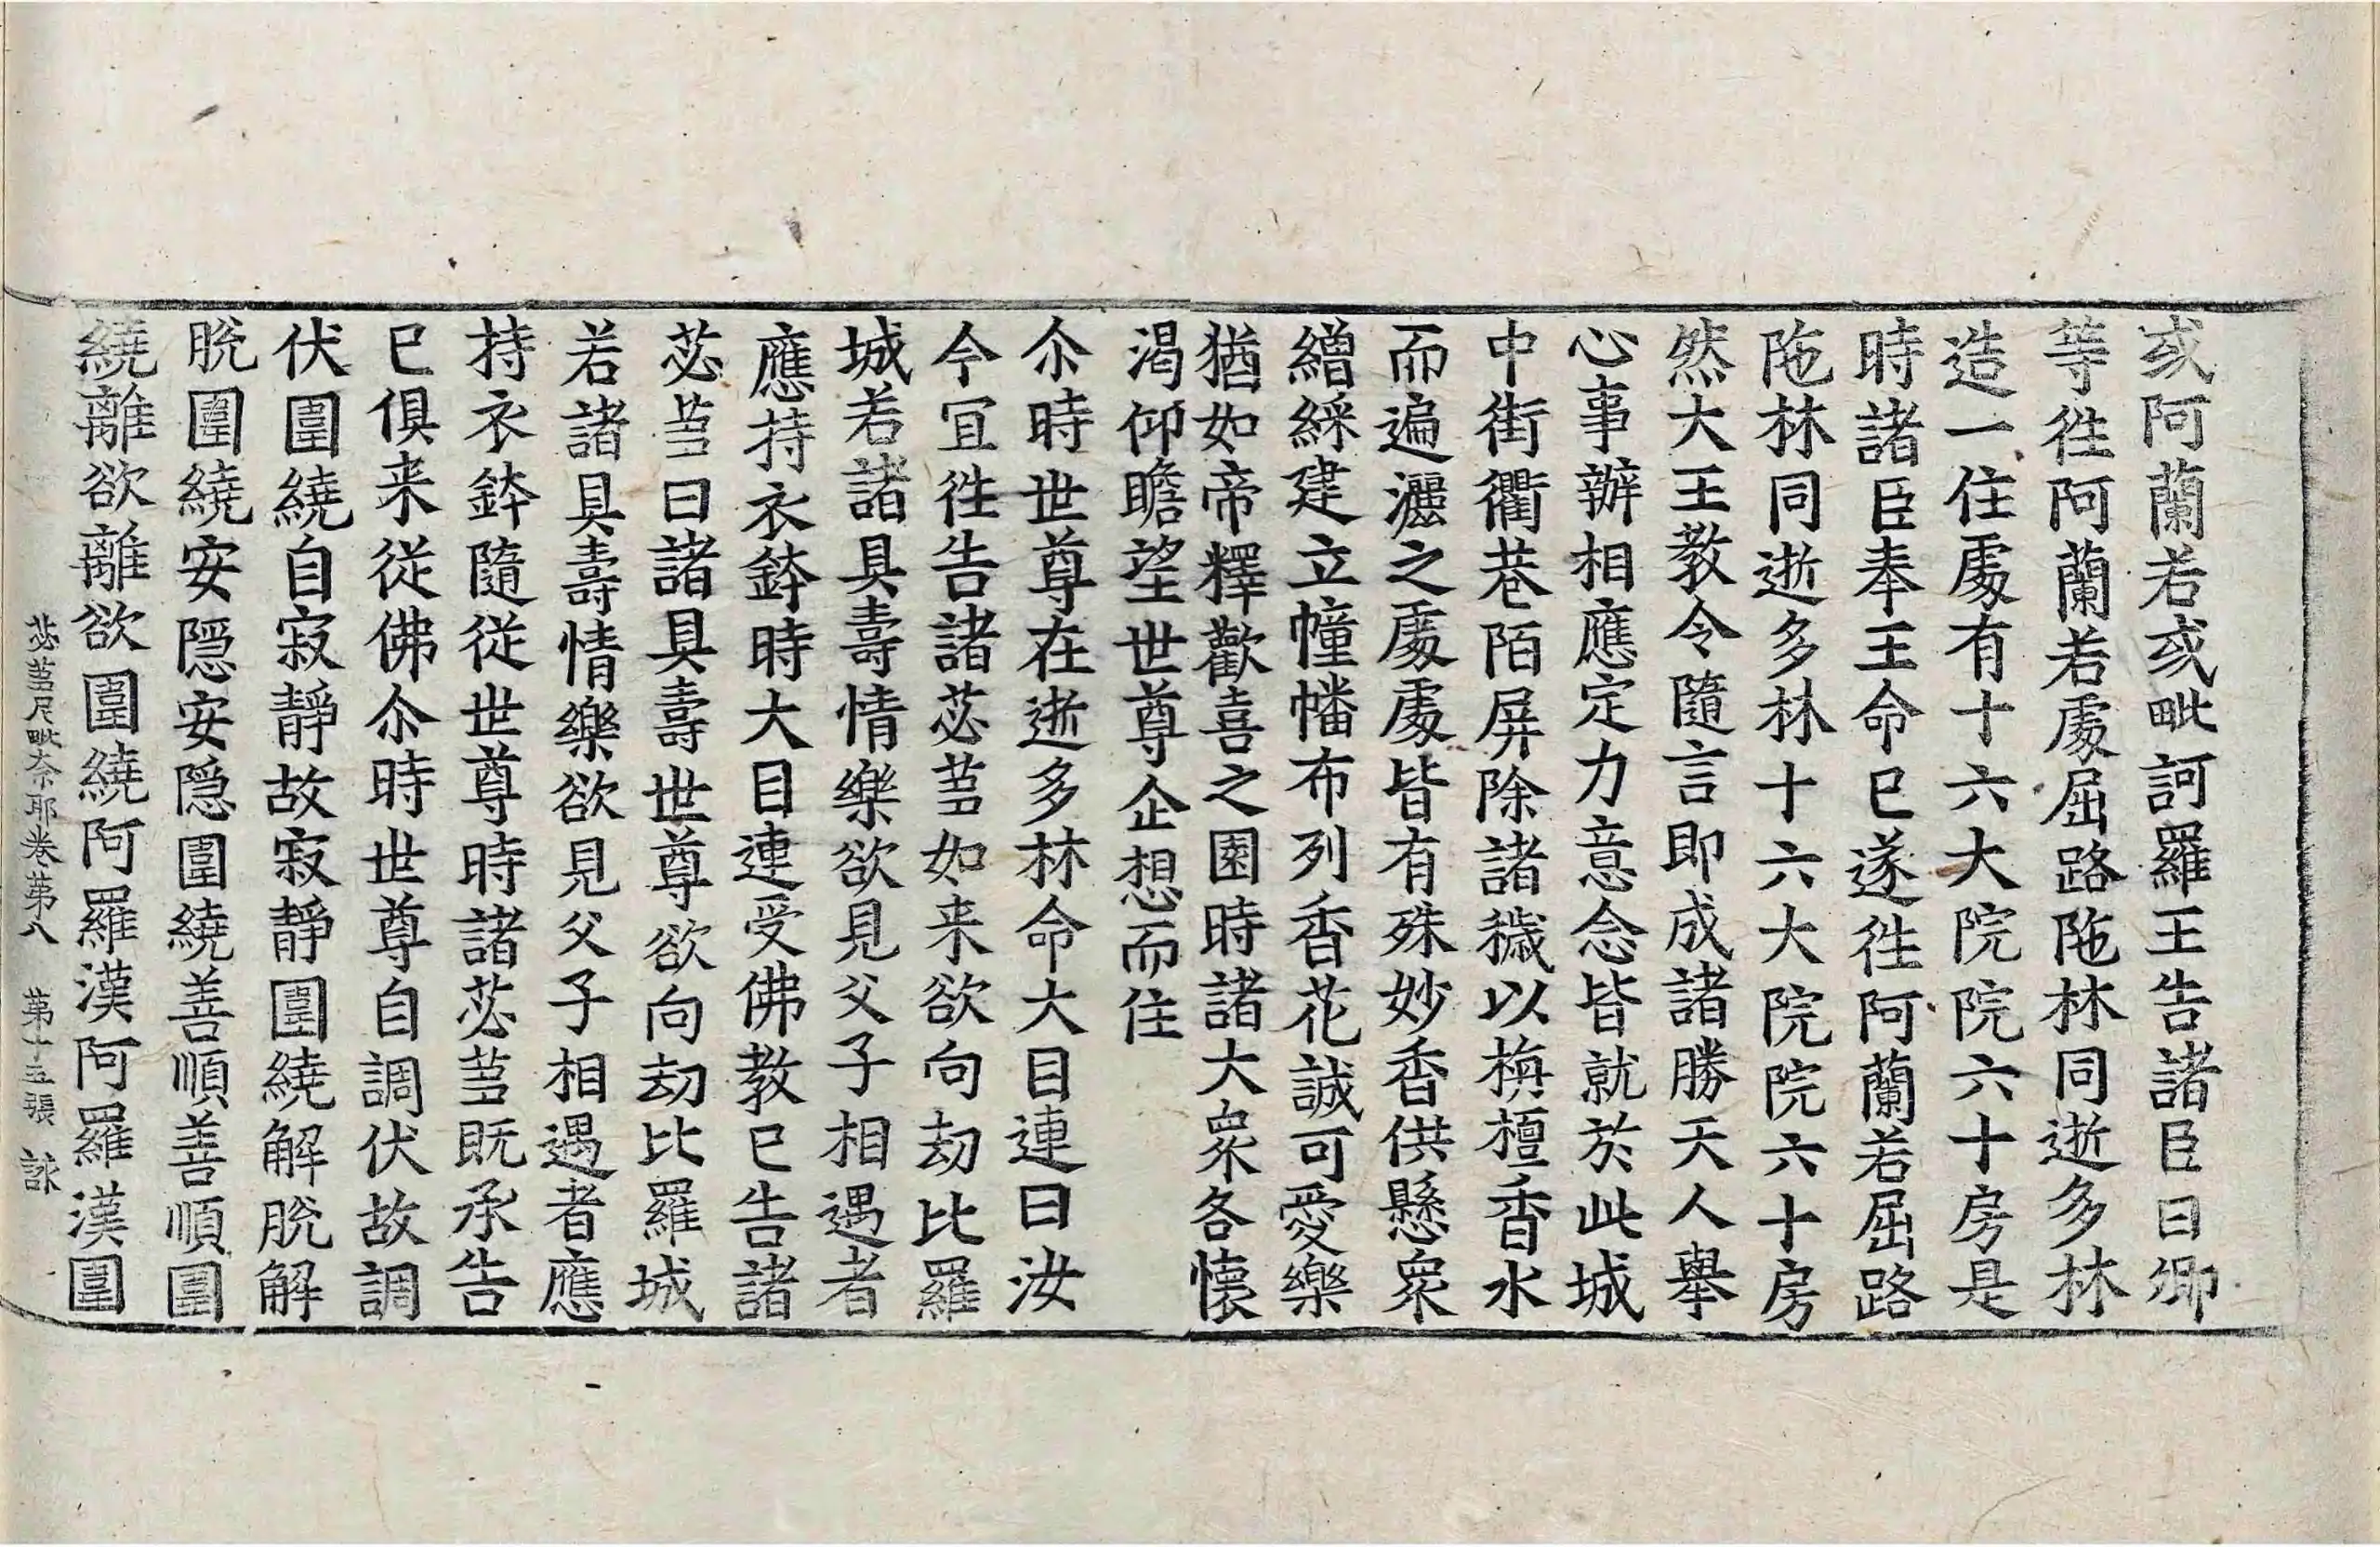 或阿蘭若或毗訶羅王告諸臣曰卿
等徃阿蘭若䖏屈路陁林同逝多林
造一住䖏有十六大院院六十房是
時諸臣奉王命已遂徃阿蘭若屈路
陁林同逝多林十六大院院六十房
然大王教令隨言即成諸勝天人舉
心事辦相應定力意念皆就於此城
中街衢巷陌屏除諸穢以栴檀香水
而遍灑之䖏䖏皆有殊妙香供懸衆
繒綵建立幢幡布列香花誠可愛樂
猶如帝釋歡喜之園時諸大衆各懷
渴仰瞻望世尊企想而住
尒時世尊在逝多林命大目連曰汝
今宜徃告諸苾芻如来欲向劫比羅
城若諸具壽情樂欲見父子相遇者
應持衣鉢時大目連受佛教已告諸
苾芻曰諸具壽世尊欲向劫比羅城
若諸具壽情樂欲見父子相遇者應
持衣鉢隨從世尊時諸苾芻既承告
已俱来從佛尒時世尊自調伏故調
伏圍繞自寂靜故寂靜圍繞解脫解
脫圍繞安隱安隱圍繞善順善順圍
繞離欲離欲圍繞阿羅漢阿羅漢圍
苾芻尼毗奈耶卷第八 第十五張 詠